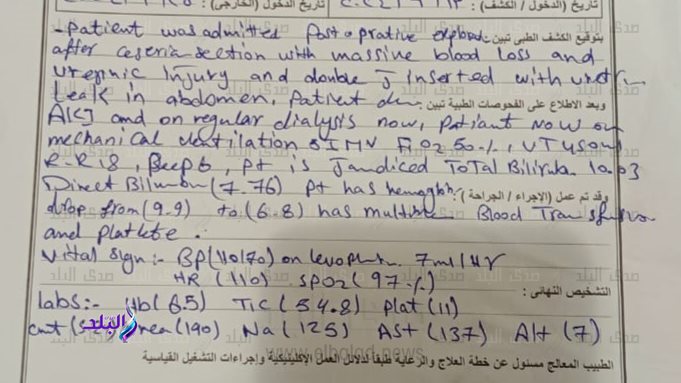 تاريخ الدخول / الكشف: تاريخ الدخول (الخارجى):
-patient was admitted post oprative explorat
بتوقيع الكشف الطبى تبين:
after ceseria section with massive blood loss and
uregnic Injury and double J inserted with
leak in abdomen, patient
وبعد الاطلاع على الفحوصات الطبية تبين:
AKI and on regular dialysis now, patiant now on
mechanical ventilation SIMV FiO2 50%, VT 450
R.R 18, peep 6, pt is Jandiced ToTal Bilirub 10.03
Direct (7.76) pt has hemoglb
وقد تم عمل (الإجراء / الجراحة):
drop from (9.9) to (6.8) has multible Blood Transfusion
and platlete.
Vital sign:- BP(110/70) on levoph 7ml/Hr
HR (110) SPO2 (97%)
التشخيص النهائى:
labs:- Hb(6.5) TLC (54.8) plat (11)
urea(190) Na(125) AST (137) Alt (7)
صدى البلد
الطبيب المعالج مسئول عن خطة العلاج والرعاية طبقاً لدلائل العمل الإكلينيكية وإجراءات التشغيل القياسية